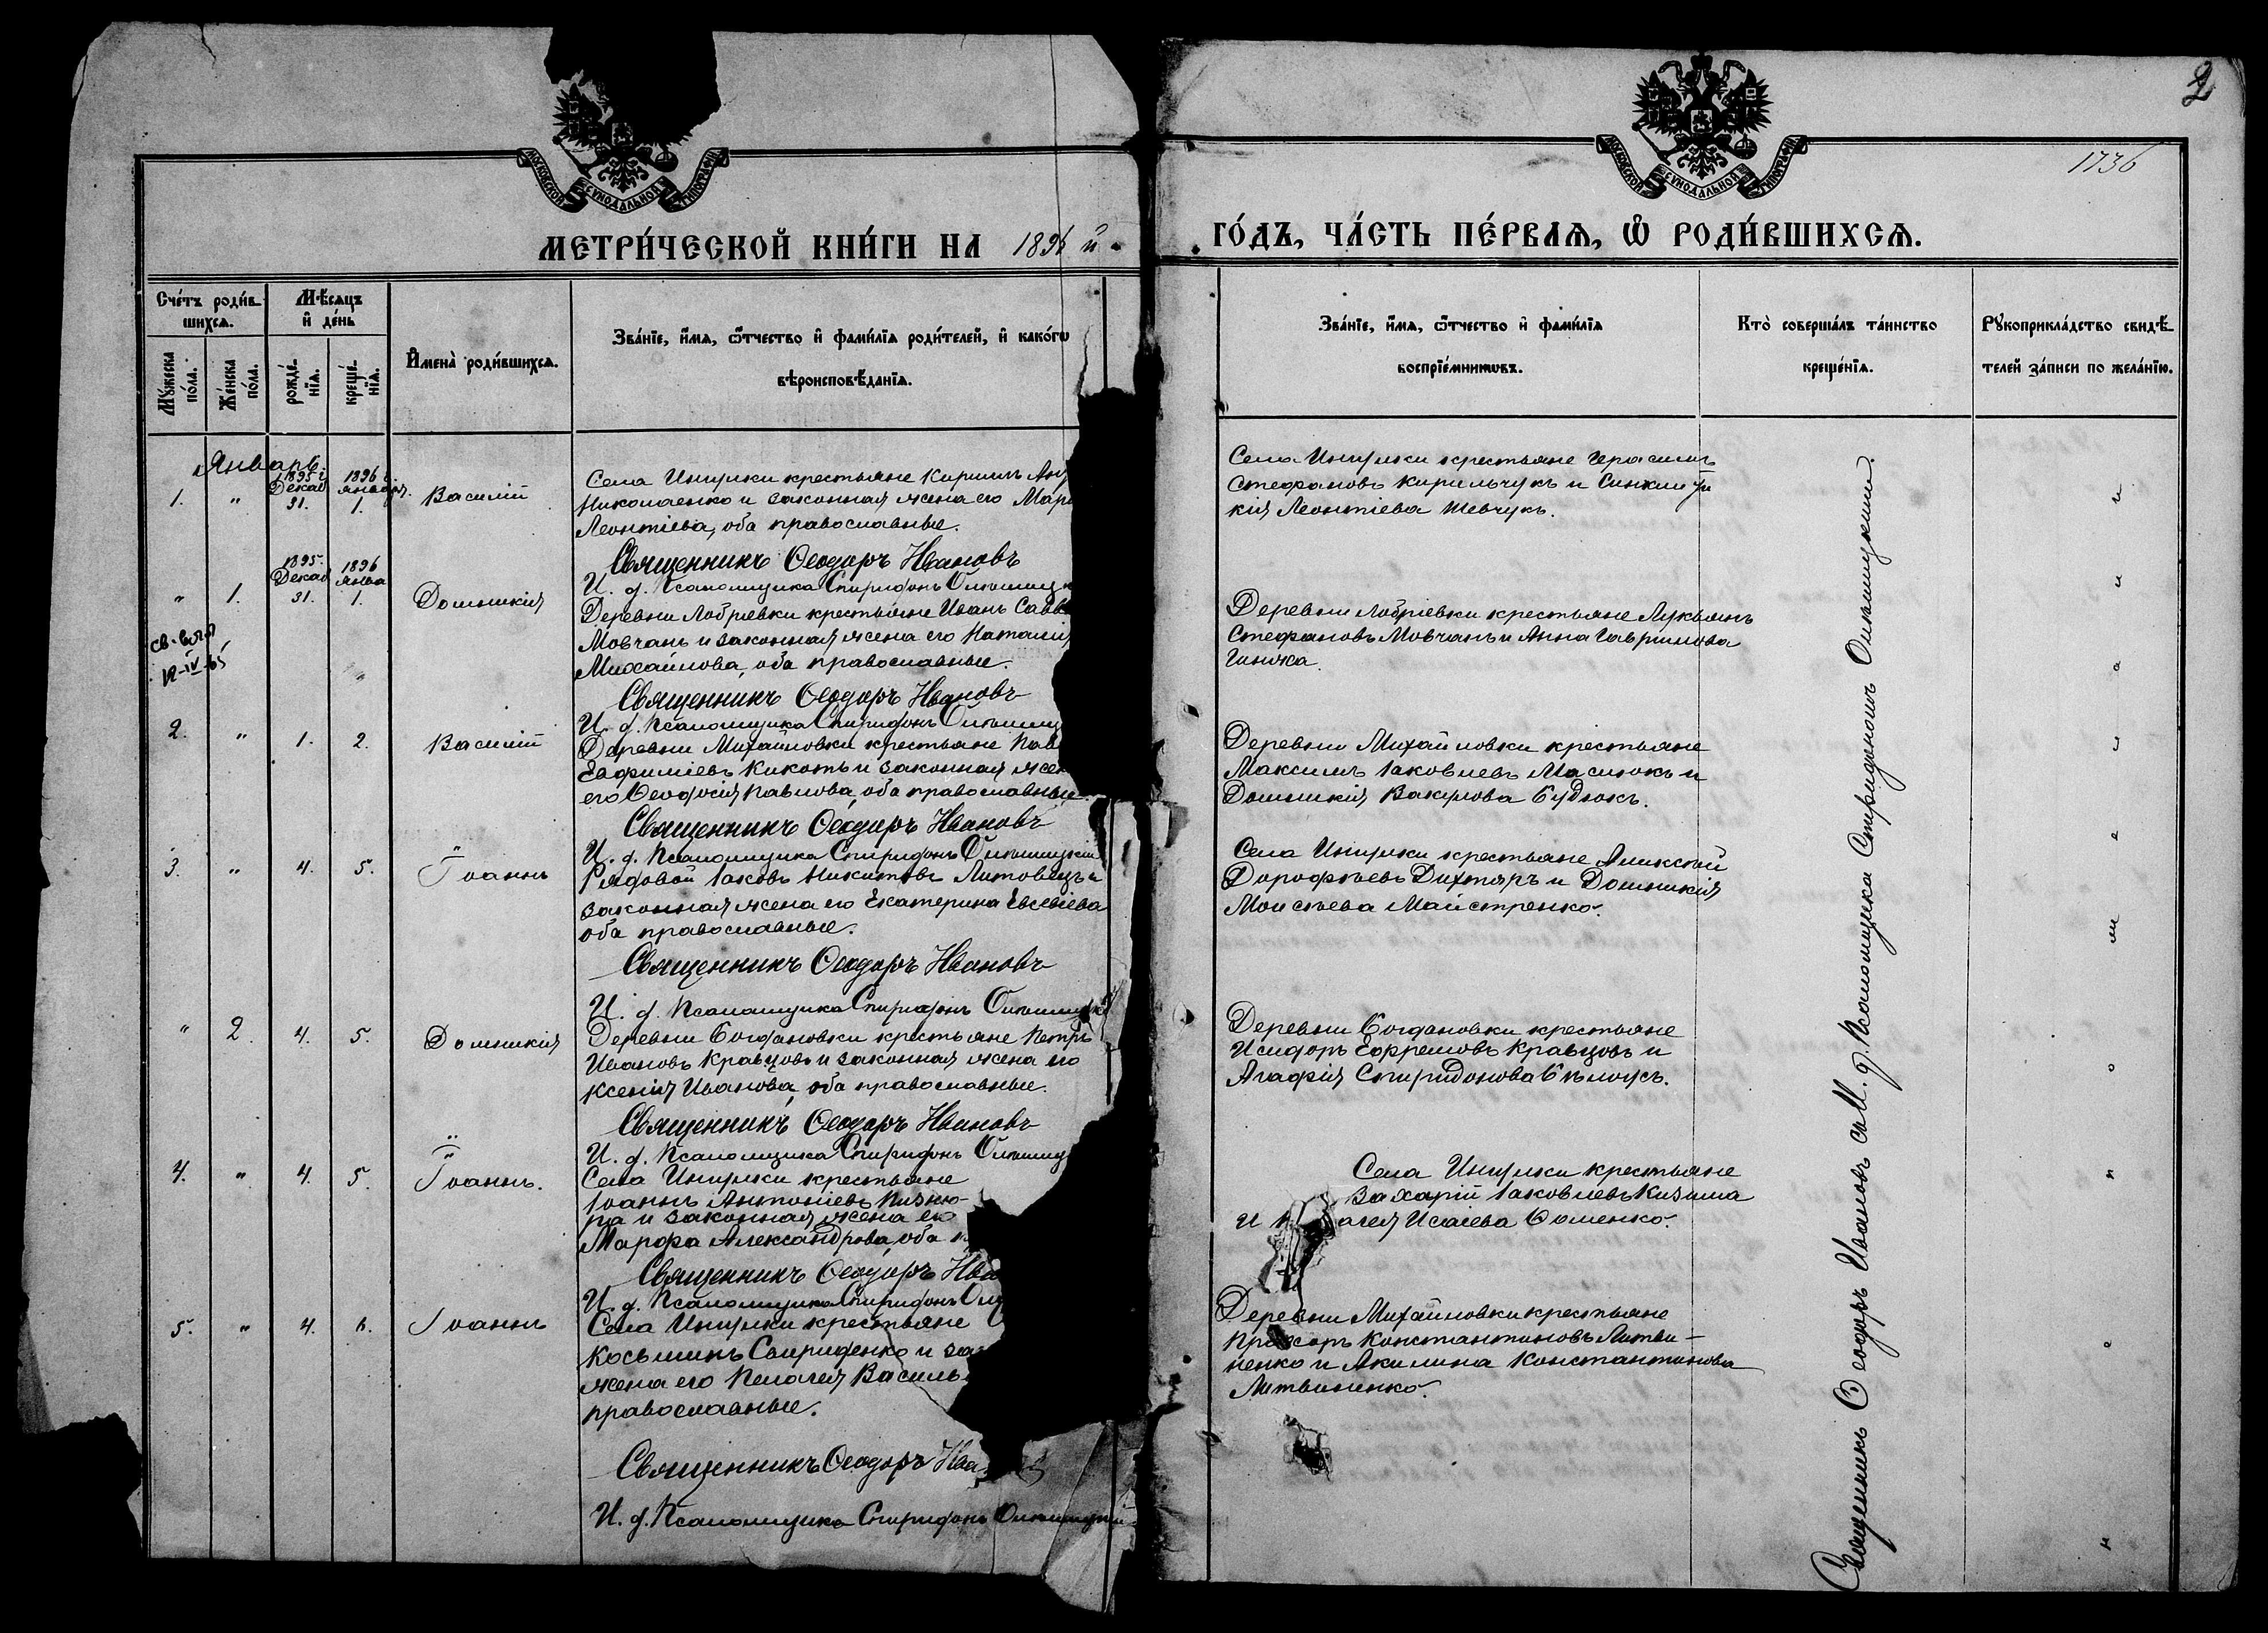 2
1736
МОСКОВСКОЙ СѴНОДАЛЬНОЙ ТИПОГРАФІИ
МОСКОВСКОЙ СѴНОДАЛЬНОЙ ТИПОГРАФІИ
МЕТРИ́ЧЕСКОЙ КНИ́ГИ НА 1896 й
ГО́ДЪ, ЧА́СТЬ ПЕ́РВАѦ, Ѡ҆ РОДИ́ВШИХСѦ.
Сче́тъ роди́в-
шихсѧ.
Мꙋ́жеска по́ла.
Же́нска по́ла.
Мѣ́сѧцъ
и҆ де́нь
рожде́-нїѧ.
креще́-нїѧ.
И҆мена̀ роди́вшихсѧ.
Зва́нїе, и҆́мѧ, ѻ҆́тчество и҆ фамѝлїѧ роди́телей, и҆ како́гѡ
вѣроисповѣ́данїѧ.
Зва́нїе, и҆́мѧ, ѻ҆́тчество и҆ фамѝлїѧ
воспрїе́мникѡвъ.
Кто̀ соверша́лъ та́инство
креще́нїѧ.
Рꙋкоприкла́дство свидѣ́-
телей за́писи по жела́нїю.
Январь.
1895 г. Декаб 31.
1896 г. Января 1.
1. " Василій
Села Инчулки крестьяне Кириллъ
Николаенко и законная жена его
Леонтіева, оба православные.
Священникъ Ѳеодоръ Ивановъ
И. д. Псаломщика Спиридонъ
Села Инчулки крестьяне Герасимъ
Стефановъ Кирильчукъ и
Леонтіева Шевчукъ.
1895. Декаб 31.
1896 Янва 1.
" 1. Домникія
Деревни Лобріевки крестьяне Иванъ
Мовчанъ и законная жена его Наталія
Михайлова, оба православные.
Священникъ Ѳеодоръ Ивановъ
И. д. Псаломщика Спиридонъ
Деревни Лобріевки крестьяне Лукьянъ
Стефановъ Мовчанъ и Анна Гаврилова
св-во
12-IV-65
2. " 1. 2. Василій
Деревни Михайловки крестьяне
Евфиміевъ Кикоть и законная жена
его Ѳеодосія Павлова, оба православные.
Священникъ Ѳеодоръ Ивановъ
И. д. Псаломщика Спиридонъ
Деревни Михайловки крестьяне
Максимъ Іаковлевъ Масюкъ и
Домникія Вакулова Будюкъ.
3. " 4. 5. Іоаннъ
Рядовой Іаковъ Никитовъ Литовецъ и
законная жена его Екатерина Евсевіева
оба православные.
Священникъ Ѳеодоръ Ивановъ
И. д. Псаломщика Спиридонъ
Села Инчулки крестьяне Алексѣй
Дорофѣевъ Дихтяръ и Домникія
Моисѣева Майстренко.
" 2. 4. 5. Домникія
Деревни Богдановки крестьяне Петръ
Ивановъ Кравцовъ и законная жена его
Ксенія Иванова, оба православные.
Священникъ Ѳеодоръ Ивановъ
И. д. Псаломщика Спиридонъ
Деревни Богдановки крестьяне
Исидоръ Ефремовъ Кравцовъ и
Агафія Спиридонова Бѣлоусъ.
4. " 4. 5. Іоаннъ.
Села Инчулки крестьяне
Іоаннъ Антоніевъ Пизню-
ра и законная жена его
Марфа Александрова, оба
Священникъ Ѳеодоръ
И. д. Псаломщика Спиридонъ
Села Инчулки крестьяне
Захарій Іаковлевъ Кизима
и Исаіева Фоменко.
5. " 4. 6. Іоаннъ
Села Инчулки крестьяне
Косьминъ Свириденко и
жена его Пелагея
православные.
Священникъ Ѳеодоръ
И. д. Псаломщика Спиридонъ
Деревни Михайловки крестьяне
Прохоръ Константиновъ Литви-
ненко и Акилина Константинова
Литвиненко.
Священникъ Ѳеодоръ Ивановъ съ И. д. Псаломщика Спиридономъ